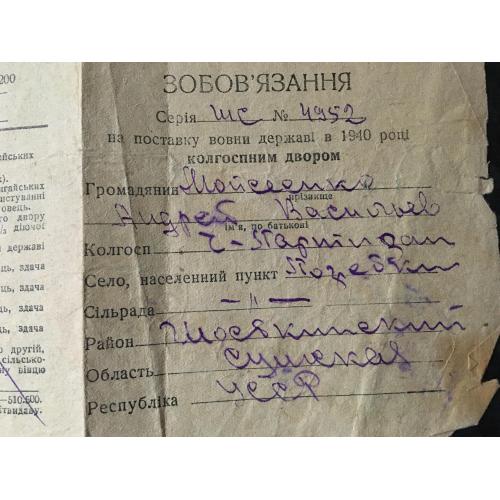 200
ЗОБОВ'ЯЗАННЯ
Серія ШС № 4952
на поставку вовни державі в 1940 році
колгоспним двором
Громадянин Мойсеенко
прізвище
Андрей Васильев
ім'я, по батькові
Колгосп Ч-Партизан
Село, населенний пункт
Сільрада —〃—
Район
Область Сумская
Республіка УССР
ейських
к).
ригайських
ристуванні
овець.
го двору
діючої
державі
ць, здача
ць, здача
ць, здача
ць, здача
о другій,
сільсько-
ну вівцю
—510.600.